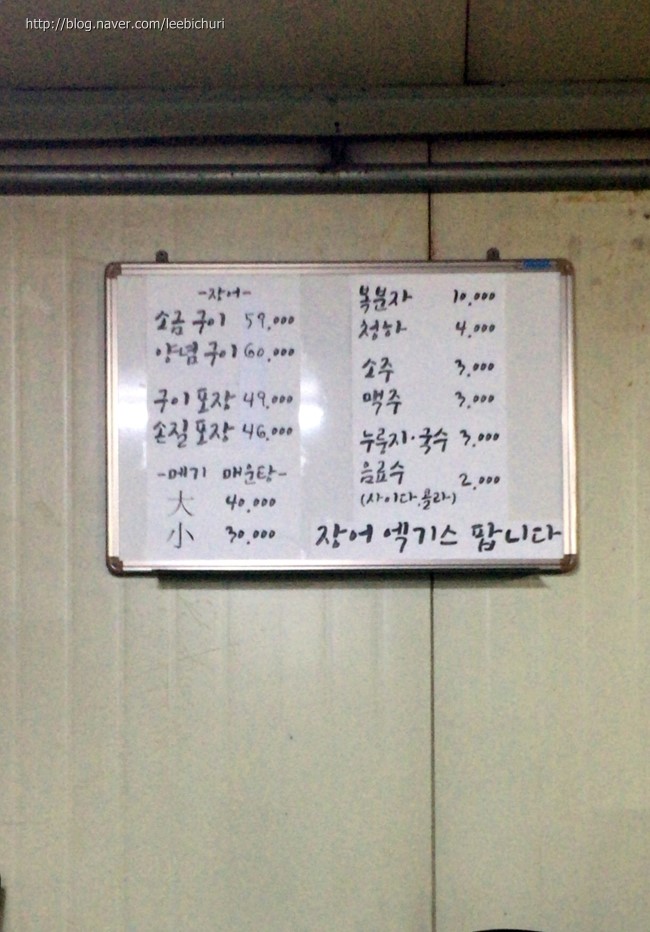 http://blog.naver.com/leebichuri
-장어-
소금구이 59.000
양념구이 60.000
구이포장 49.000
손질포장 46.000
-메기 매운탕-
大 40.000
小 30.000
복분자 10.000
청하 4.000
소주 3.000
맥주 3.000
누룽지·국수 3.000
음료수 2.000
(사이다.콜라)
장어 엑기스 팝니다